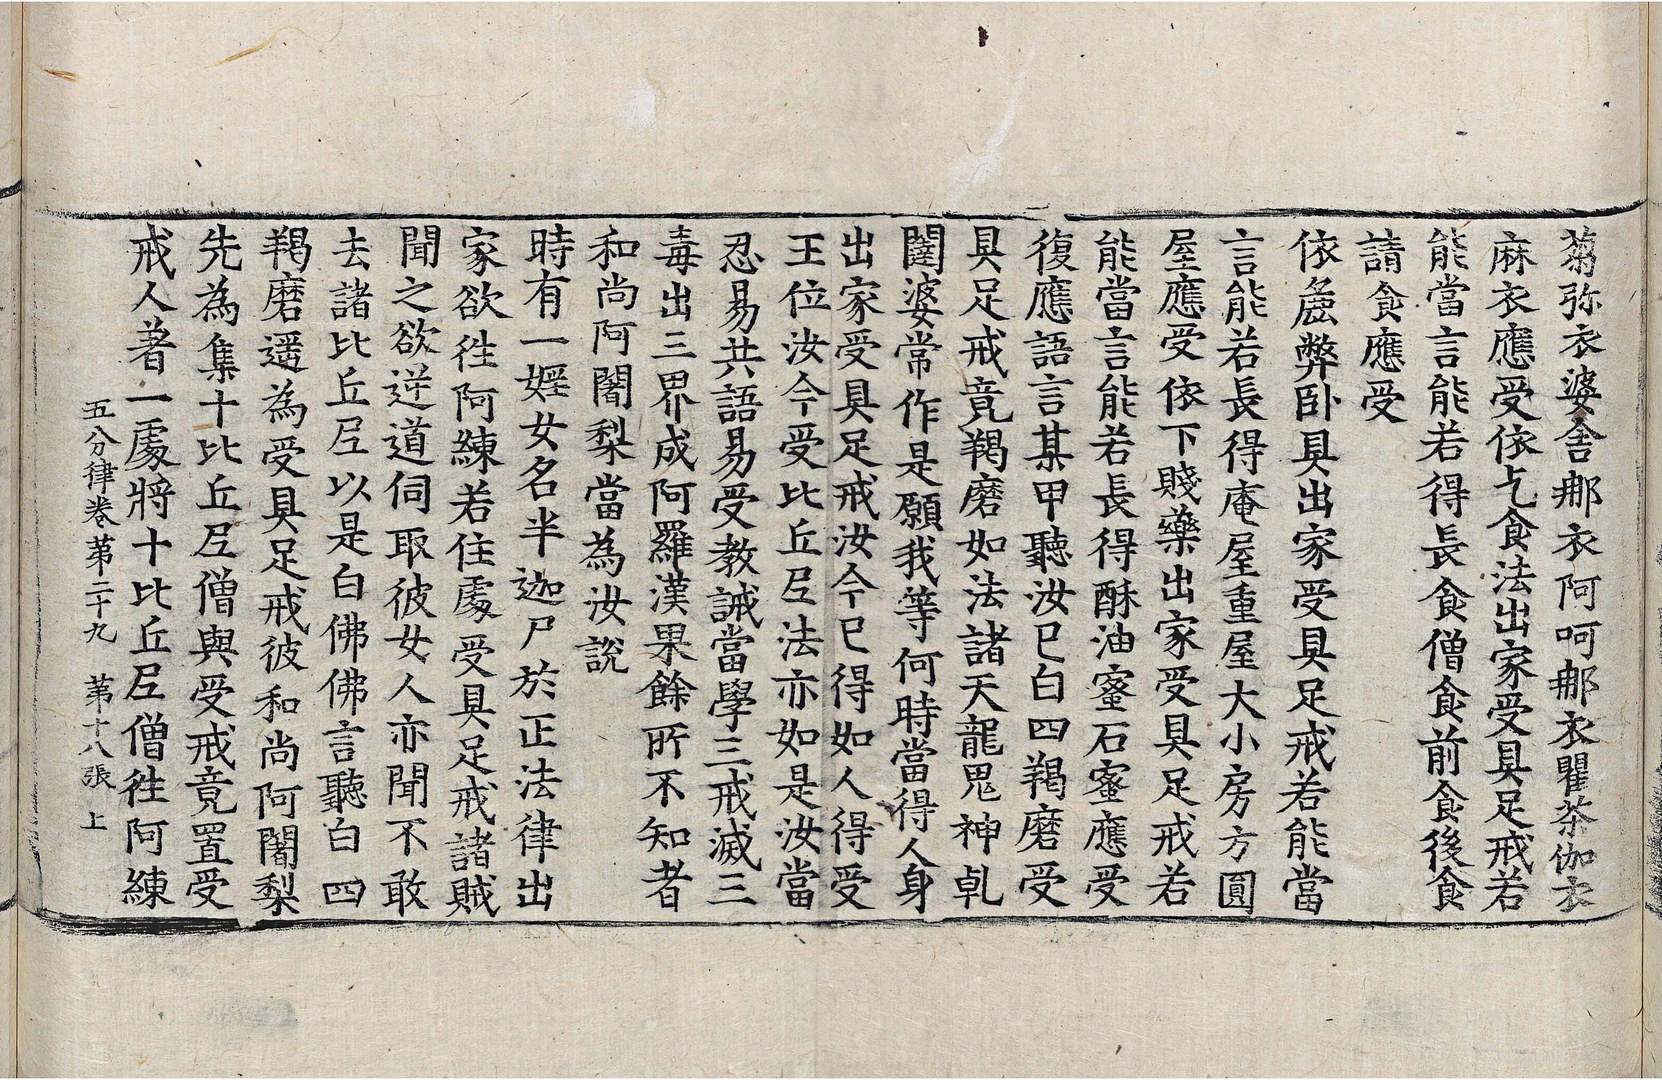 菊弥衣婆舍那衣阿呵那衣瞿茶伽衣
麻衣應受依乞食法出家受具足戒若
能當言能若得長食僧食前食後食
請食應受
依麁弊卧具出家受具足戒若能當
言能若長得庵屋重屋大小房方圓
屋應受依下賤藥出家受具足戒若
能當言能若長得酥油蜜石蜜應受
復應語言某甲聽汝已白四羯磨受
具足戒竟羯磨如法諸天龍鬼神乹
闥婆常作是願我等何時當得人身
出家受具足戒汝今已得如人得受
王位汝今受比丘尼法亦如是汝當
忍易共語易受教誡當學三戒滅三
毒出三界成阿羅漢果餘所不知者
和尚阿闍梨當為汝說
時有一婬女名半迦尸於正法律出
家欲徃阿練若住處受具足戒諸賊
聞之欲逆道伺取彼女人亦聞不敢
去諸比丘尼以是白佛佛言聽白四
羯磨遥為受具足戒彼和尚阿闍梨
先為集十比丘尼僧與受戒竟置受
戒人著一處將十比丘尼僧徃阿練
五分律卷苐二十九 苐十八張 上